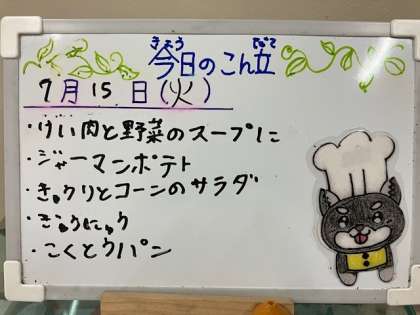 今日のこん立
きょう だて
7月15日(火)
・けい肉と野菜のスープに
・ジャーマンポテト
・きゅうりとコーンのサラダ
・ぎゅうにゅう
・こくとうパン